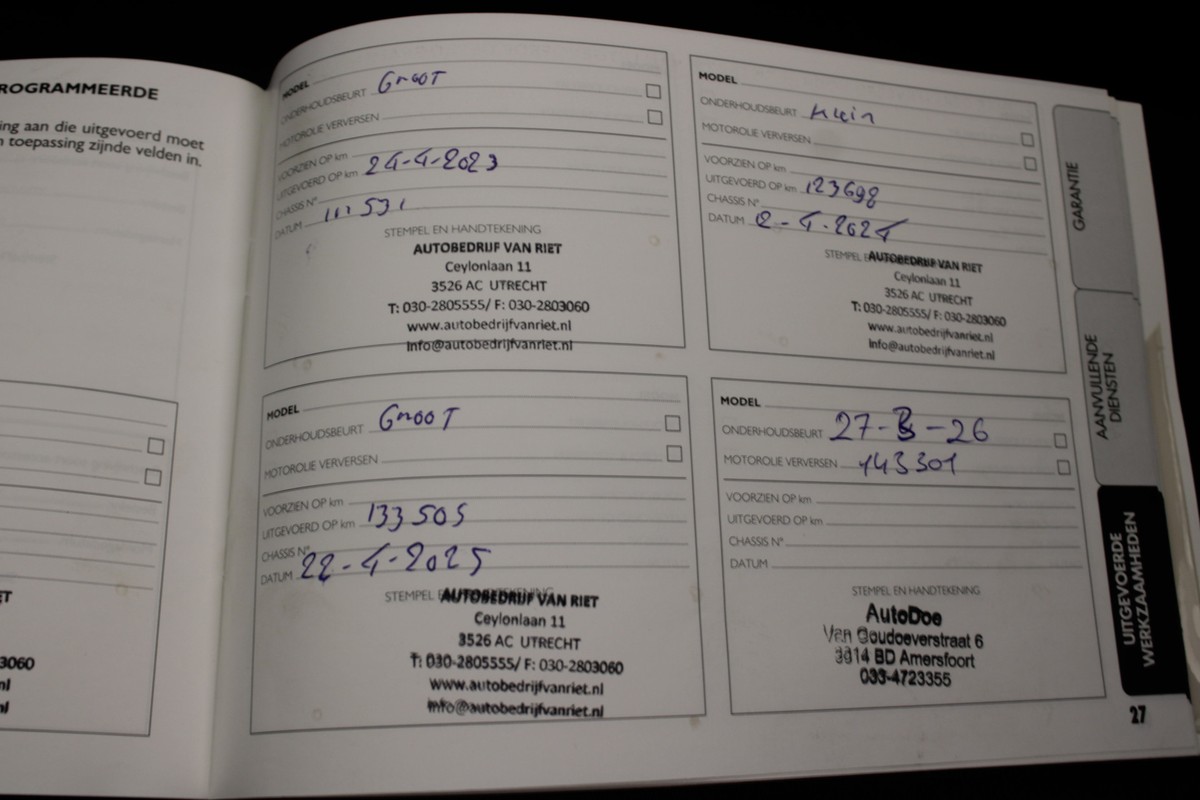 ROGRAMMEERDE
ing aan die uitgevoerd moet
n toepassing zijnde velden in.
3060
nl
nl
MODEL
ONDERHOUDSBEURT GrooT
MOTOROLIE VERVERSEN
VOORZIEN OP km
UITGEVOERD OP km 24-4-2023
CHASSIS N°
DATUM 111531
STEMPEL EN HANDTEKENING
AUTOBEDRIJF VAN RIET
Ceylonlaan 11
3526 AC UTRECHT
T: 030-2805555/ F: 030-2803060
www.autobedrijfvanriet.nl
info@autobedrijfvanriet.nl
MODEL
ONDERHOUDSBEURT Klein
MOTOROLIE VERVERSEN
VOORZIEN OP km
UITGEVOERD OP km 123698
CHASSIS N°
DATUM 2-4-2024
STEMPEL E
AUTOBEDRIJF VAN RIET
Ceylonlaan 11
3526 AC UTRECHT
T: 030-2805555/ F: 030-2803060
www.autobedrijfvanriet.nl
info@autobedrijfvanriet.nl
MODEL
ONDERHOUDSBEURT GrooT
MOTOROLIE VERVERSEN
VOORZIEN OP km
UITGEVOERD OP km 133505
CHASSIS N°
DATUM 22-4-2025
STEMPEL E
AUTOBEDRIJF VAN RIET
Ceylonlaan 11
3526 AC UTRECHT
T: 030-2805555/ F: 030-2803060
www.autobedrijfvanriet.nl
info@autobedrijfvanriet.nl
MODEL
ONDERHOUDSBEURT 27-3-26
MOTOROLIE VERVERSEN 143301
VOORZIEN OP km
UITGEVOERD OP km
CHASSIS N°
DATUM
STEMPEL EN HANDTEKENING
AutoDoe
Van Goudoeverstraat 6
3814 BD Amersfoort
033-4723355
GARANTIE
AANVULLENDE
DIENSTEN
UITGEVOERDE
WERKZAAMHEDEN
27